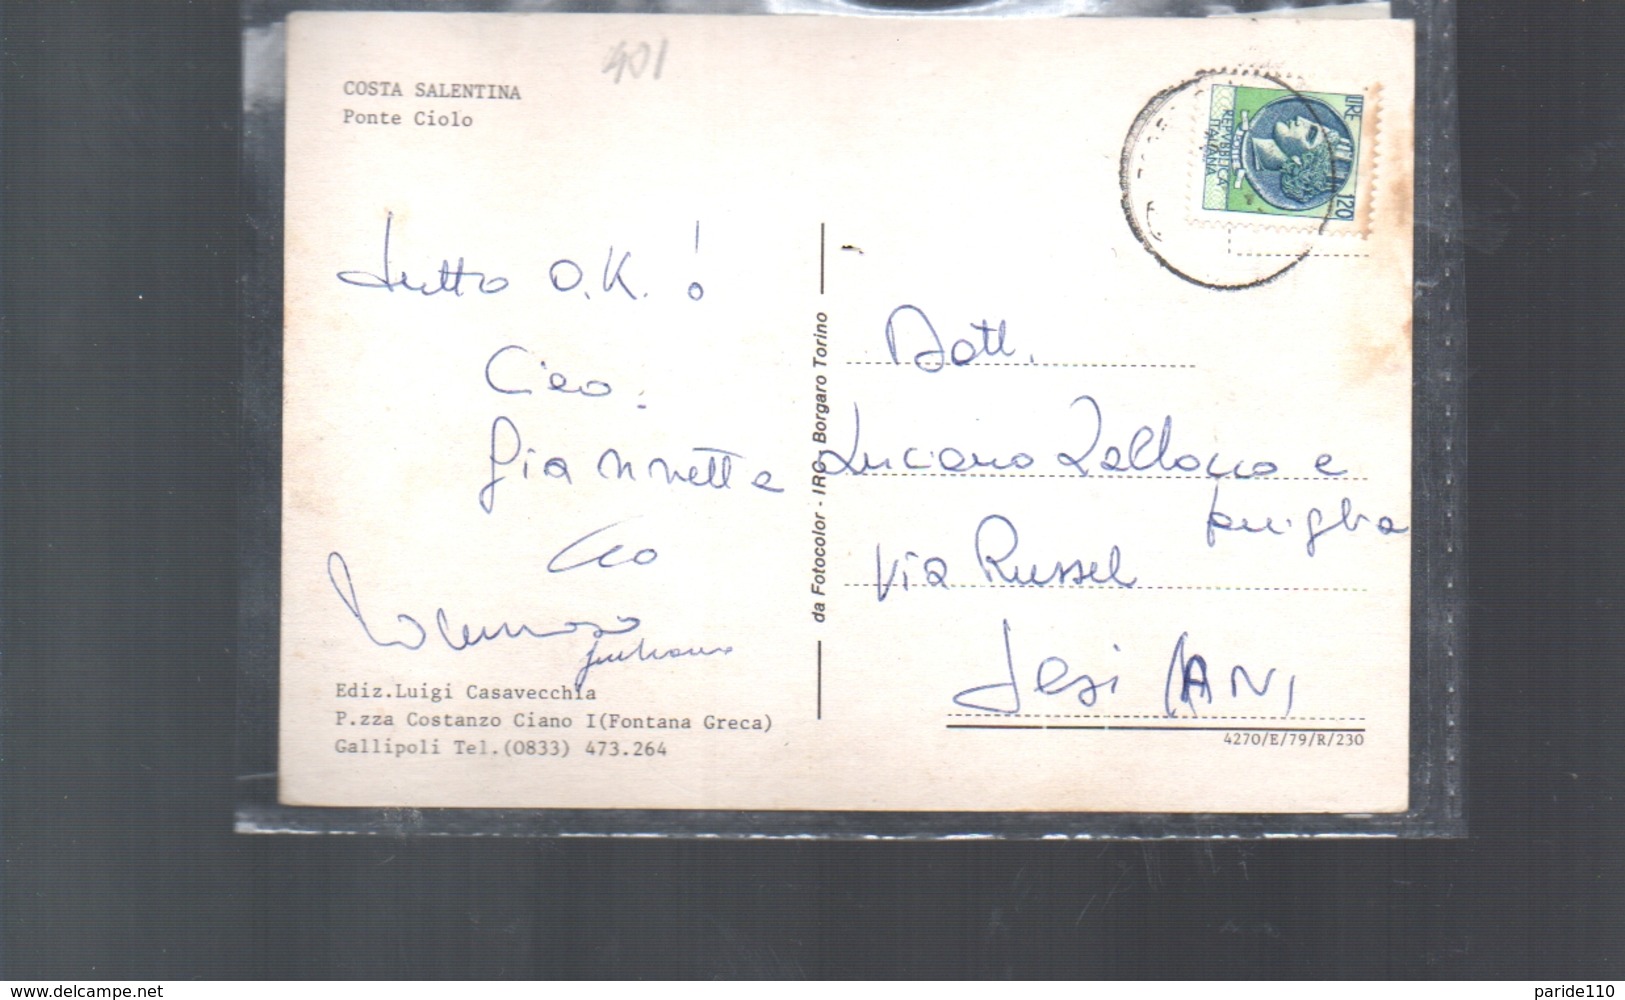 401
COSTA SALENTINA
Ponte Ciolo
LIRE 120
REPVBBLICA ITALIANA
Tutto O.K.!
Ciao.
Giannetta
Ciao
Ediz.Luigi Casavecchia
P.zza Costanzo Ciano I(Fontana Greca)
Gallipoli Tel.(0833) 473.264
da Fotocolor - IRC Borgaro Torino
Dott.
Luciano Zallocco e
famiglia
Via Russel
Jesi (AN)
4270/E/79/R/230
www.delcampe.net
paride110